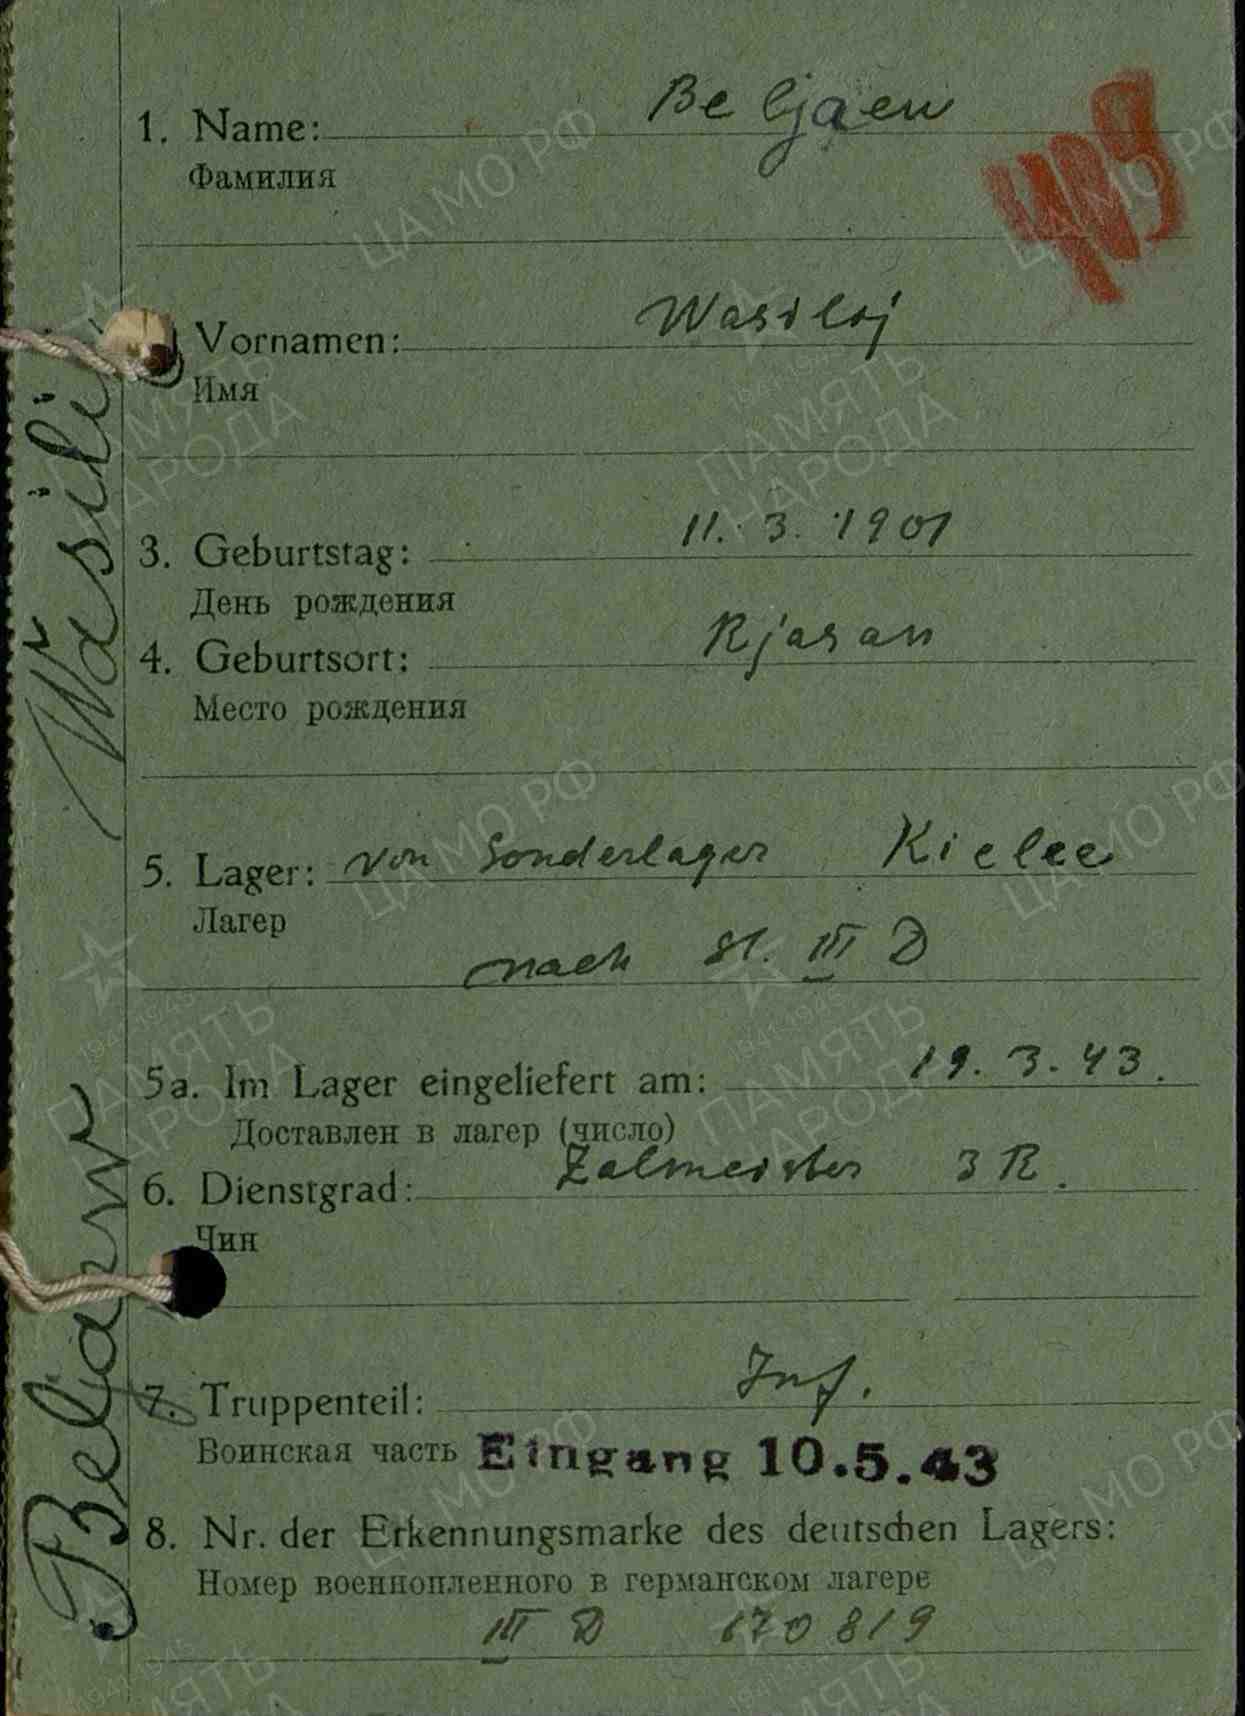 1. Name: Beljaew
Фамилия
409
Vornamen: Wasilij
Имя
3. Geburtstag: 11. 3. 1901
День рождения
4. Geburtsort: Rjasan
Место рождения
5. Lager: von Sonderlager Kielce
Лагер
nach St. III D
5a. Im Lager eingeliefert am: 19. 3. 43.
Доставлен в лагер (число)
6. Dienstgrad: Zalmeister 3 R.
Чин
7. Truppenteil: Inf.
Воинская часть Eingang 10.5.43
8. Nr. der Erkennungsmarke des deutschen Lagers:
Номер военнопленного в германском лагере
III D 170819
Beljaew Wasilij
ЦА МО РФ
1941-1945
ПАМЯТЬ
НАРОДА